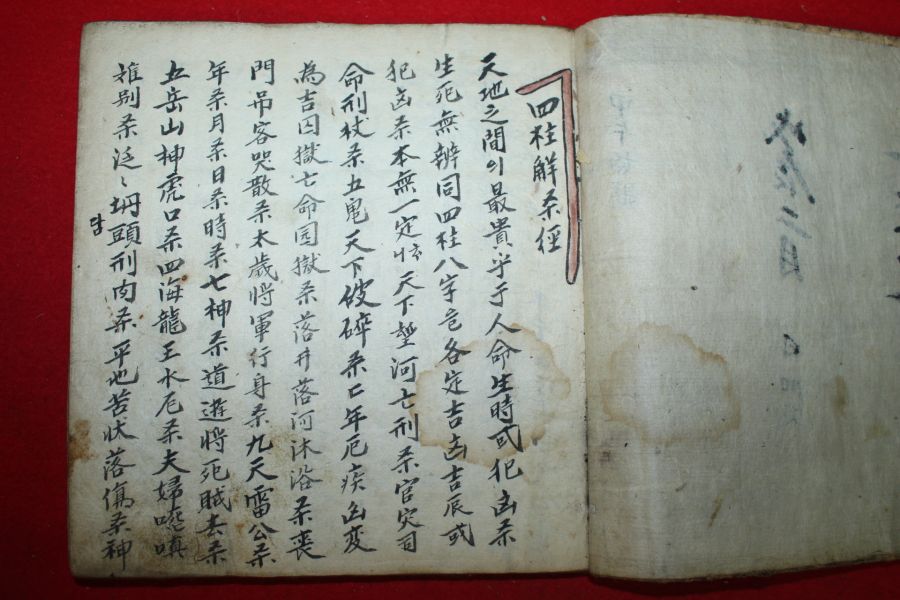 四柱解杀徑
天地之間의最貴乎于人命生時或犯凶杀
生死無辨同四柱八字各定吉凶吉辰或
犯凶杀本無一定 天下 河亡刑杀官災
命刑杖杀五鬼天下破碎杀亡年厄疾 変
為吉囚獄亡命囯獄杀落井落河沐浴杀喪
門吊客哭散杀太歲將軍行身杀九天雷公杀
年杀月杀日杀時杀七神杀道遊將死賊去杀
五岳山神虎口杀四海龍王水厄杀夫婦嗔
雉别杀泛〻坍頭刑肉杀平地苦状落傷杀神
탐
二日